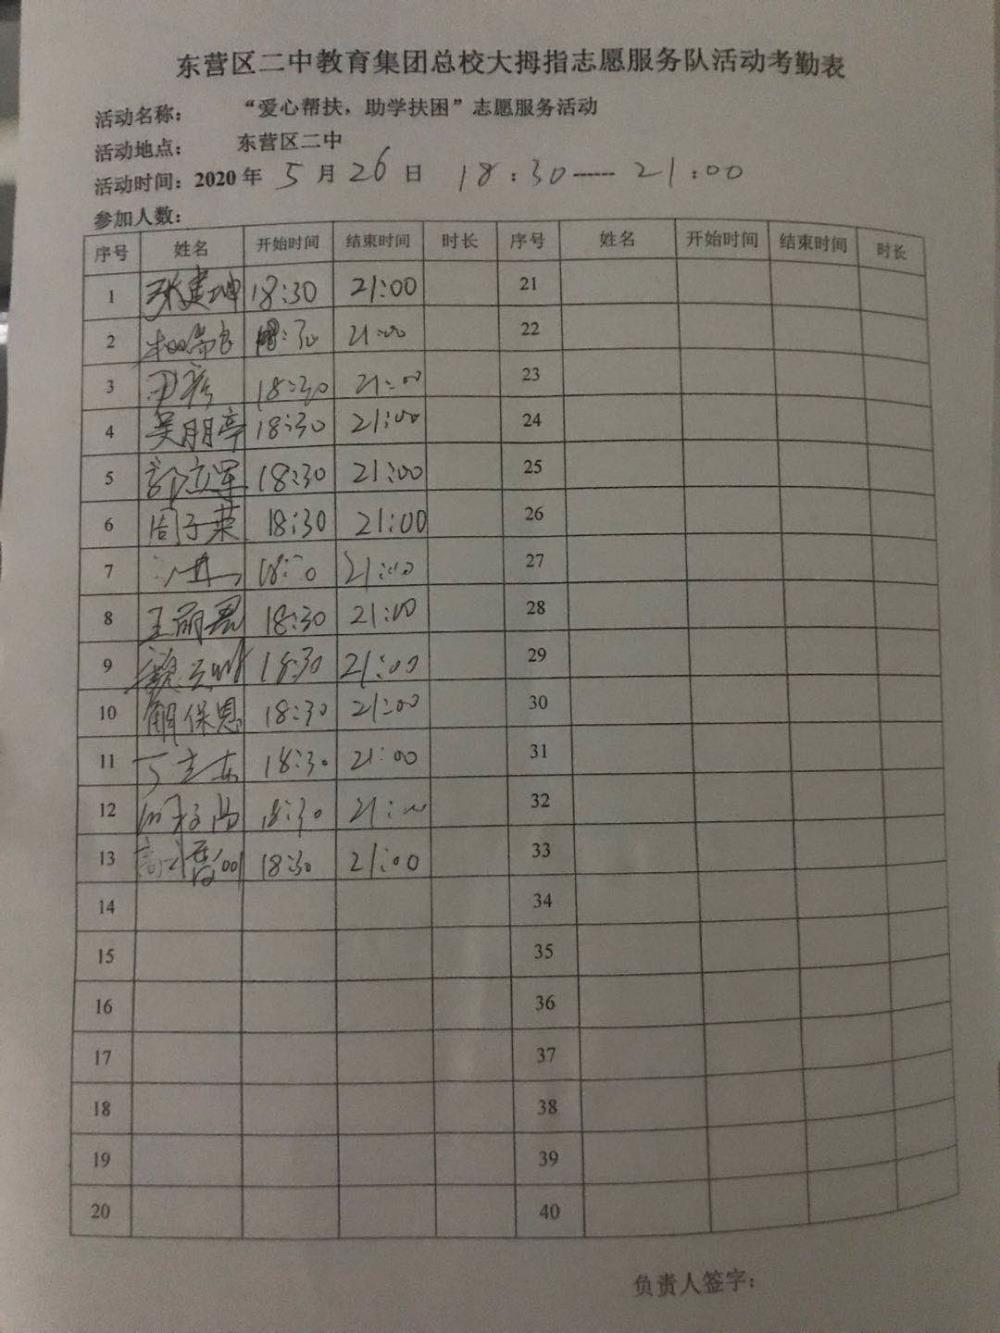 东营区二中教育集团总校大拇指志愿服务队活动考勤表
活动名称： “爱心帮扶，助学扶困”志愿服务活动
活动地点： 东营区二中
活动时间：2020 年 5 月 26 日 18:30----- 21:00
参加人数：
序号 姓名 开始时间 结束时间 时长 序号 姓名 开始时间 结束时间 时长
1 张建坤 18:30 21:00 21
2 18:30 21:00 22
3 18:30 21:00 23
4 吴朋亭 18:30 21:00 24
5 郭立军 18:30 21:00 25
6 周子荣 18:30 21:00 26
7 18:30 21:00 27
8 王丽君 18:30 21:00 28
9 18:30 21:00 29
10 保恩 18:30 21:00 30
11 丁立东 18:30 21:00 31
12 18:30 21:00 32
13 18:30 21:00 33
14 34
15 35
16 36
17 37
18 38
19 39
20 40
负责人签字：